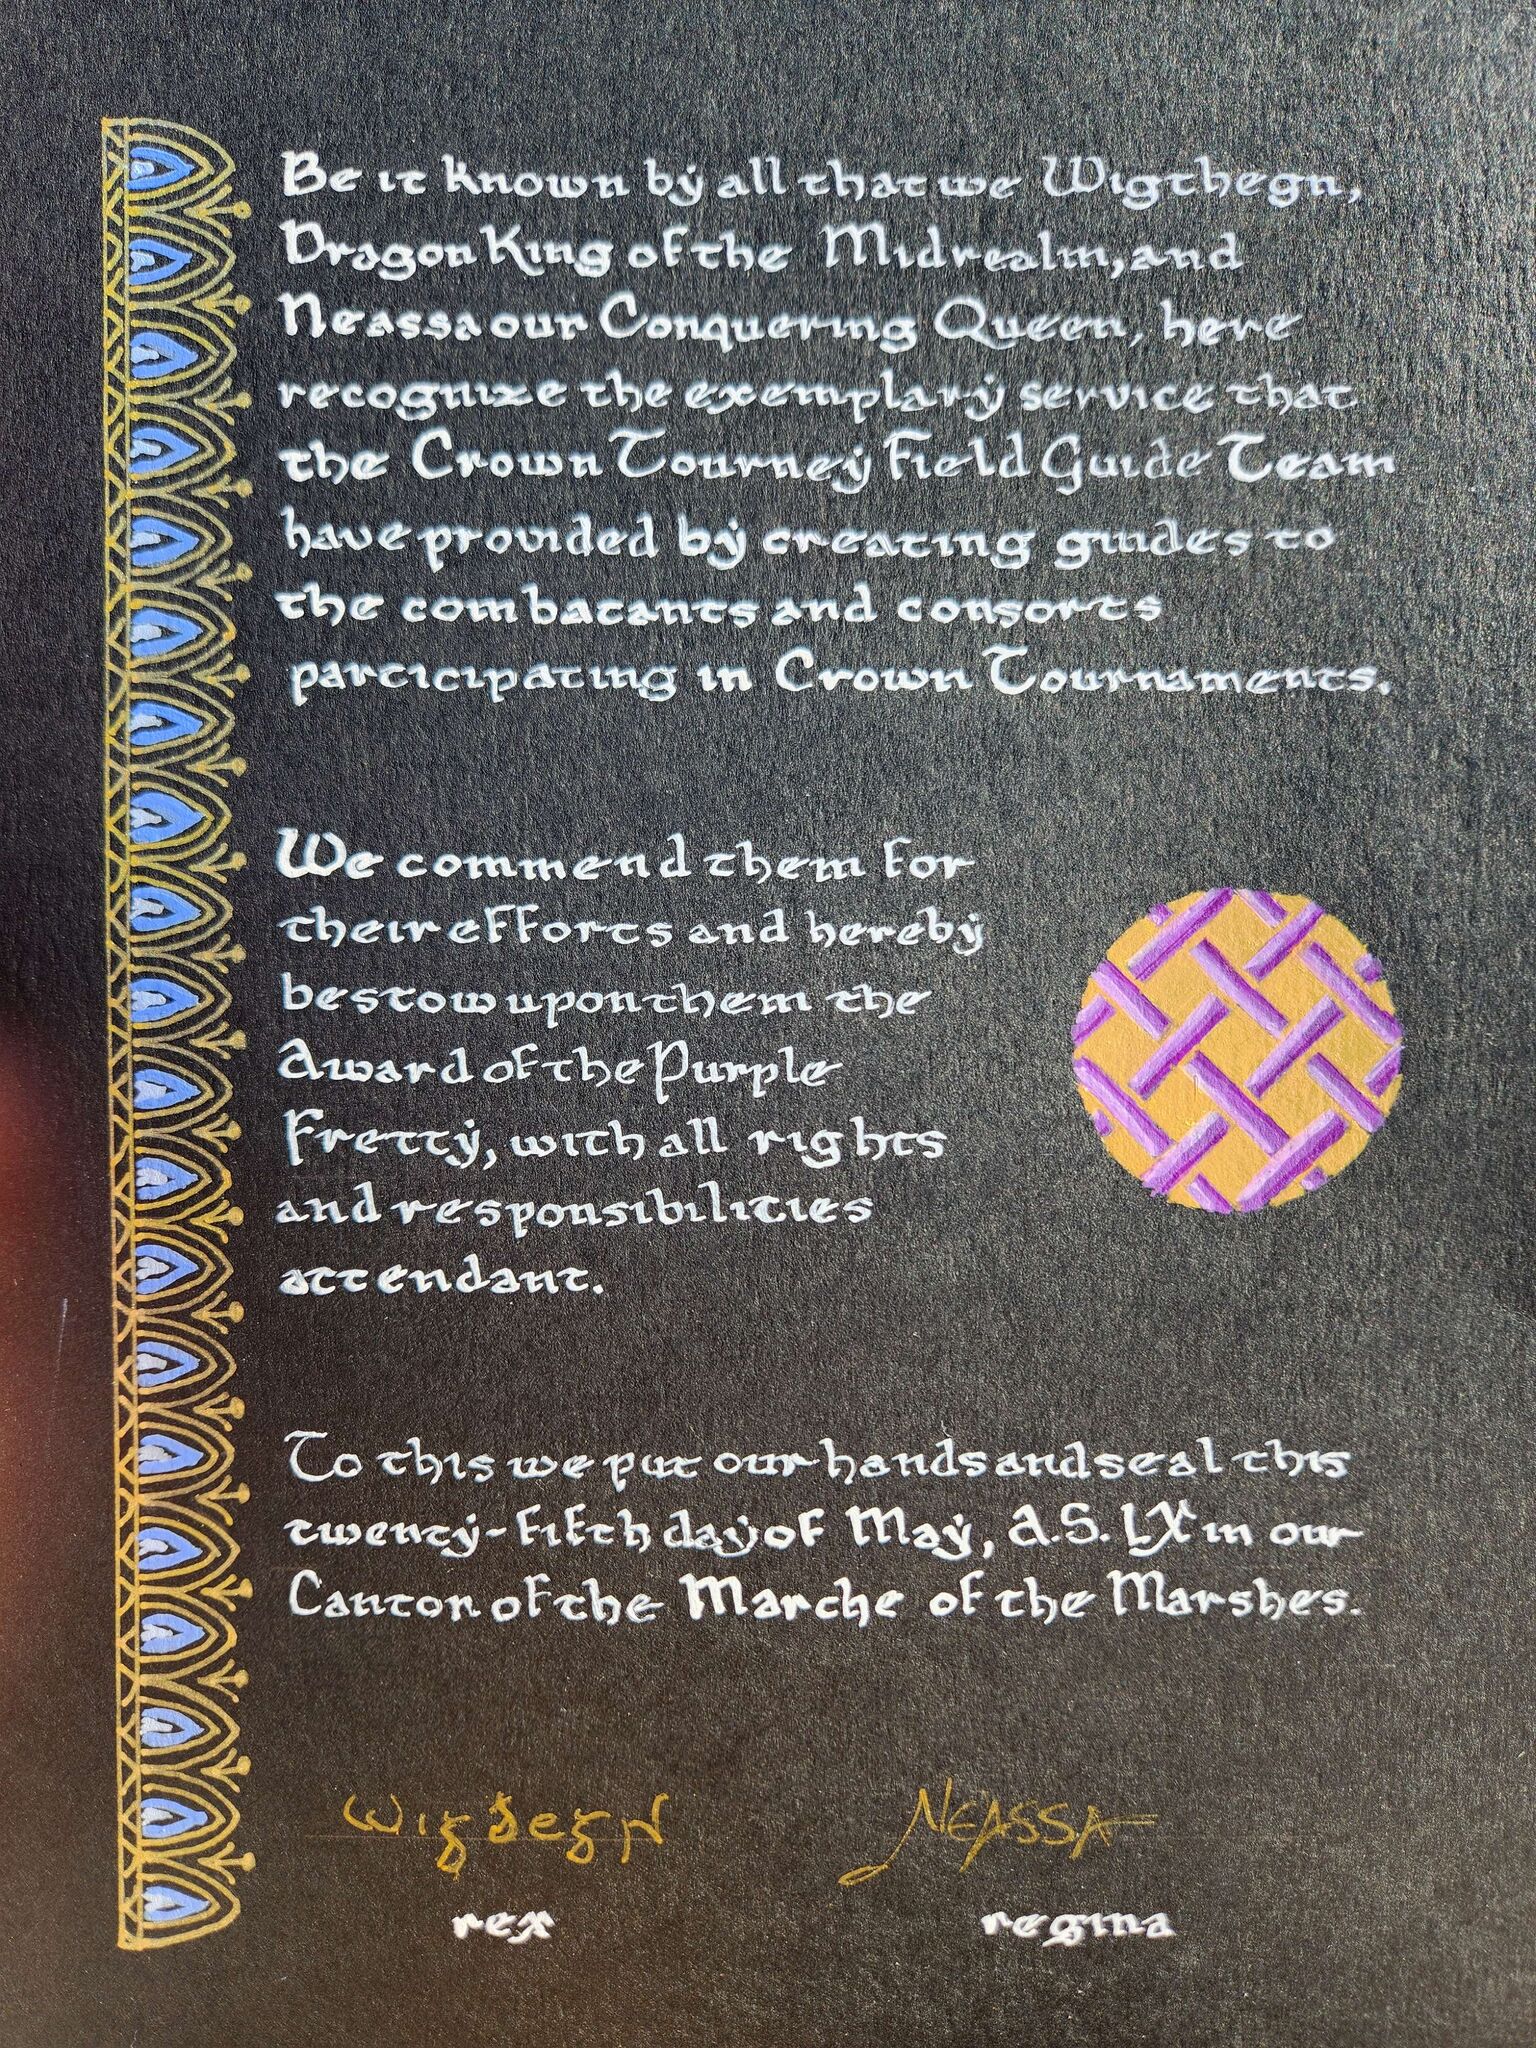 Be it known by all that we Wigthegn,
Dragon King of the Midrealm, and
Neassa our Conquering Queen, here
recognize the exemplary service that
the Crown Tourney Field Guide Team
have provided by creating guides to
the combatants and consorts
participating in Crown Tournaments.
We commend them for
their efforts and hereby
bestow upon them the
Award of the Purple
Fretty, with all rights
and responsibilities
attendant.
To this we put our hands and seal this
twenty-fifth day of May, A.S. LX in our
Canton of the Marche of the Marshes.
Wigþegn NEASSA
rex regina